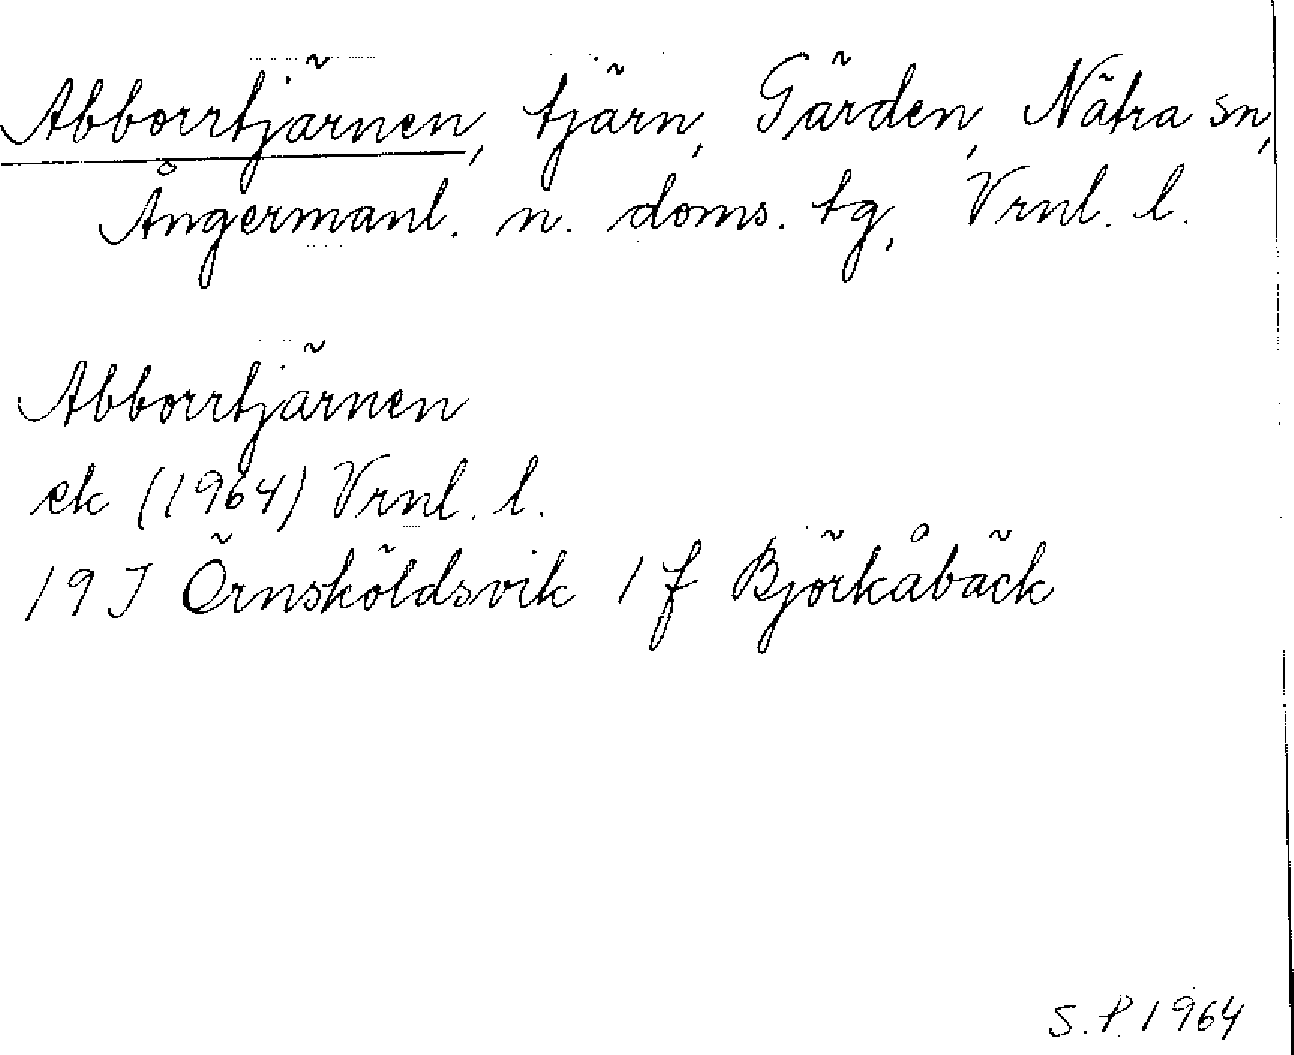 Abborrtjärnen, tjärn, Gärden, Nätra sn,
Ångermanl. n. doms. tg, Vrnl. l.
Abborrtjärnen
ek (1964) Vrnl. l.
19 J Örnsköldsvik 1 f Björkåbäck
S.P. 1964